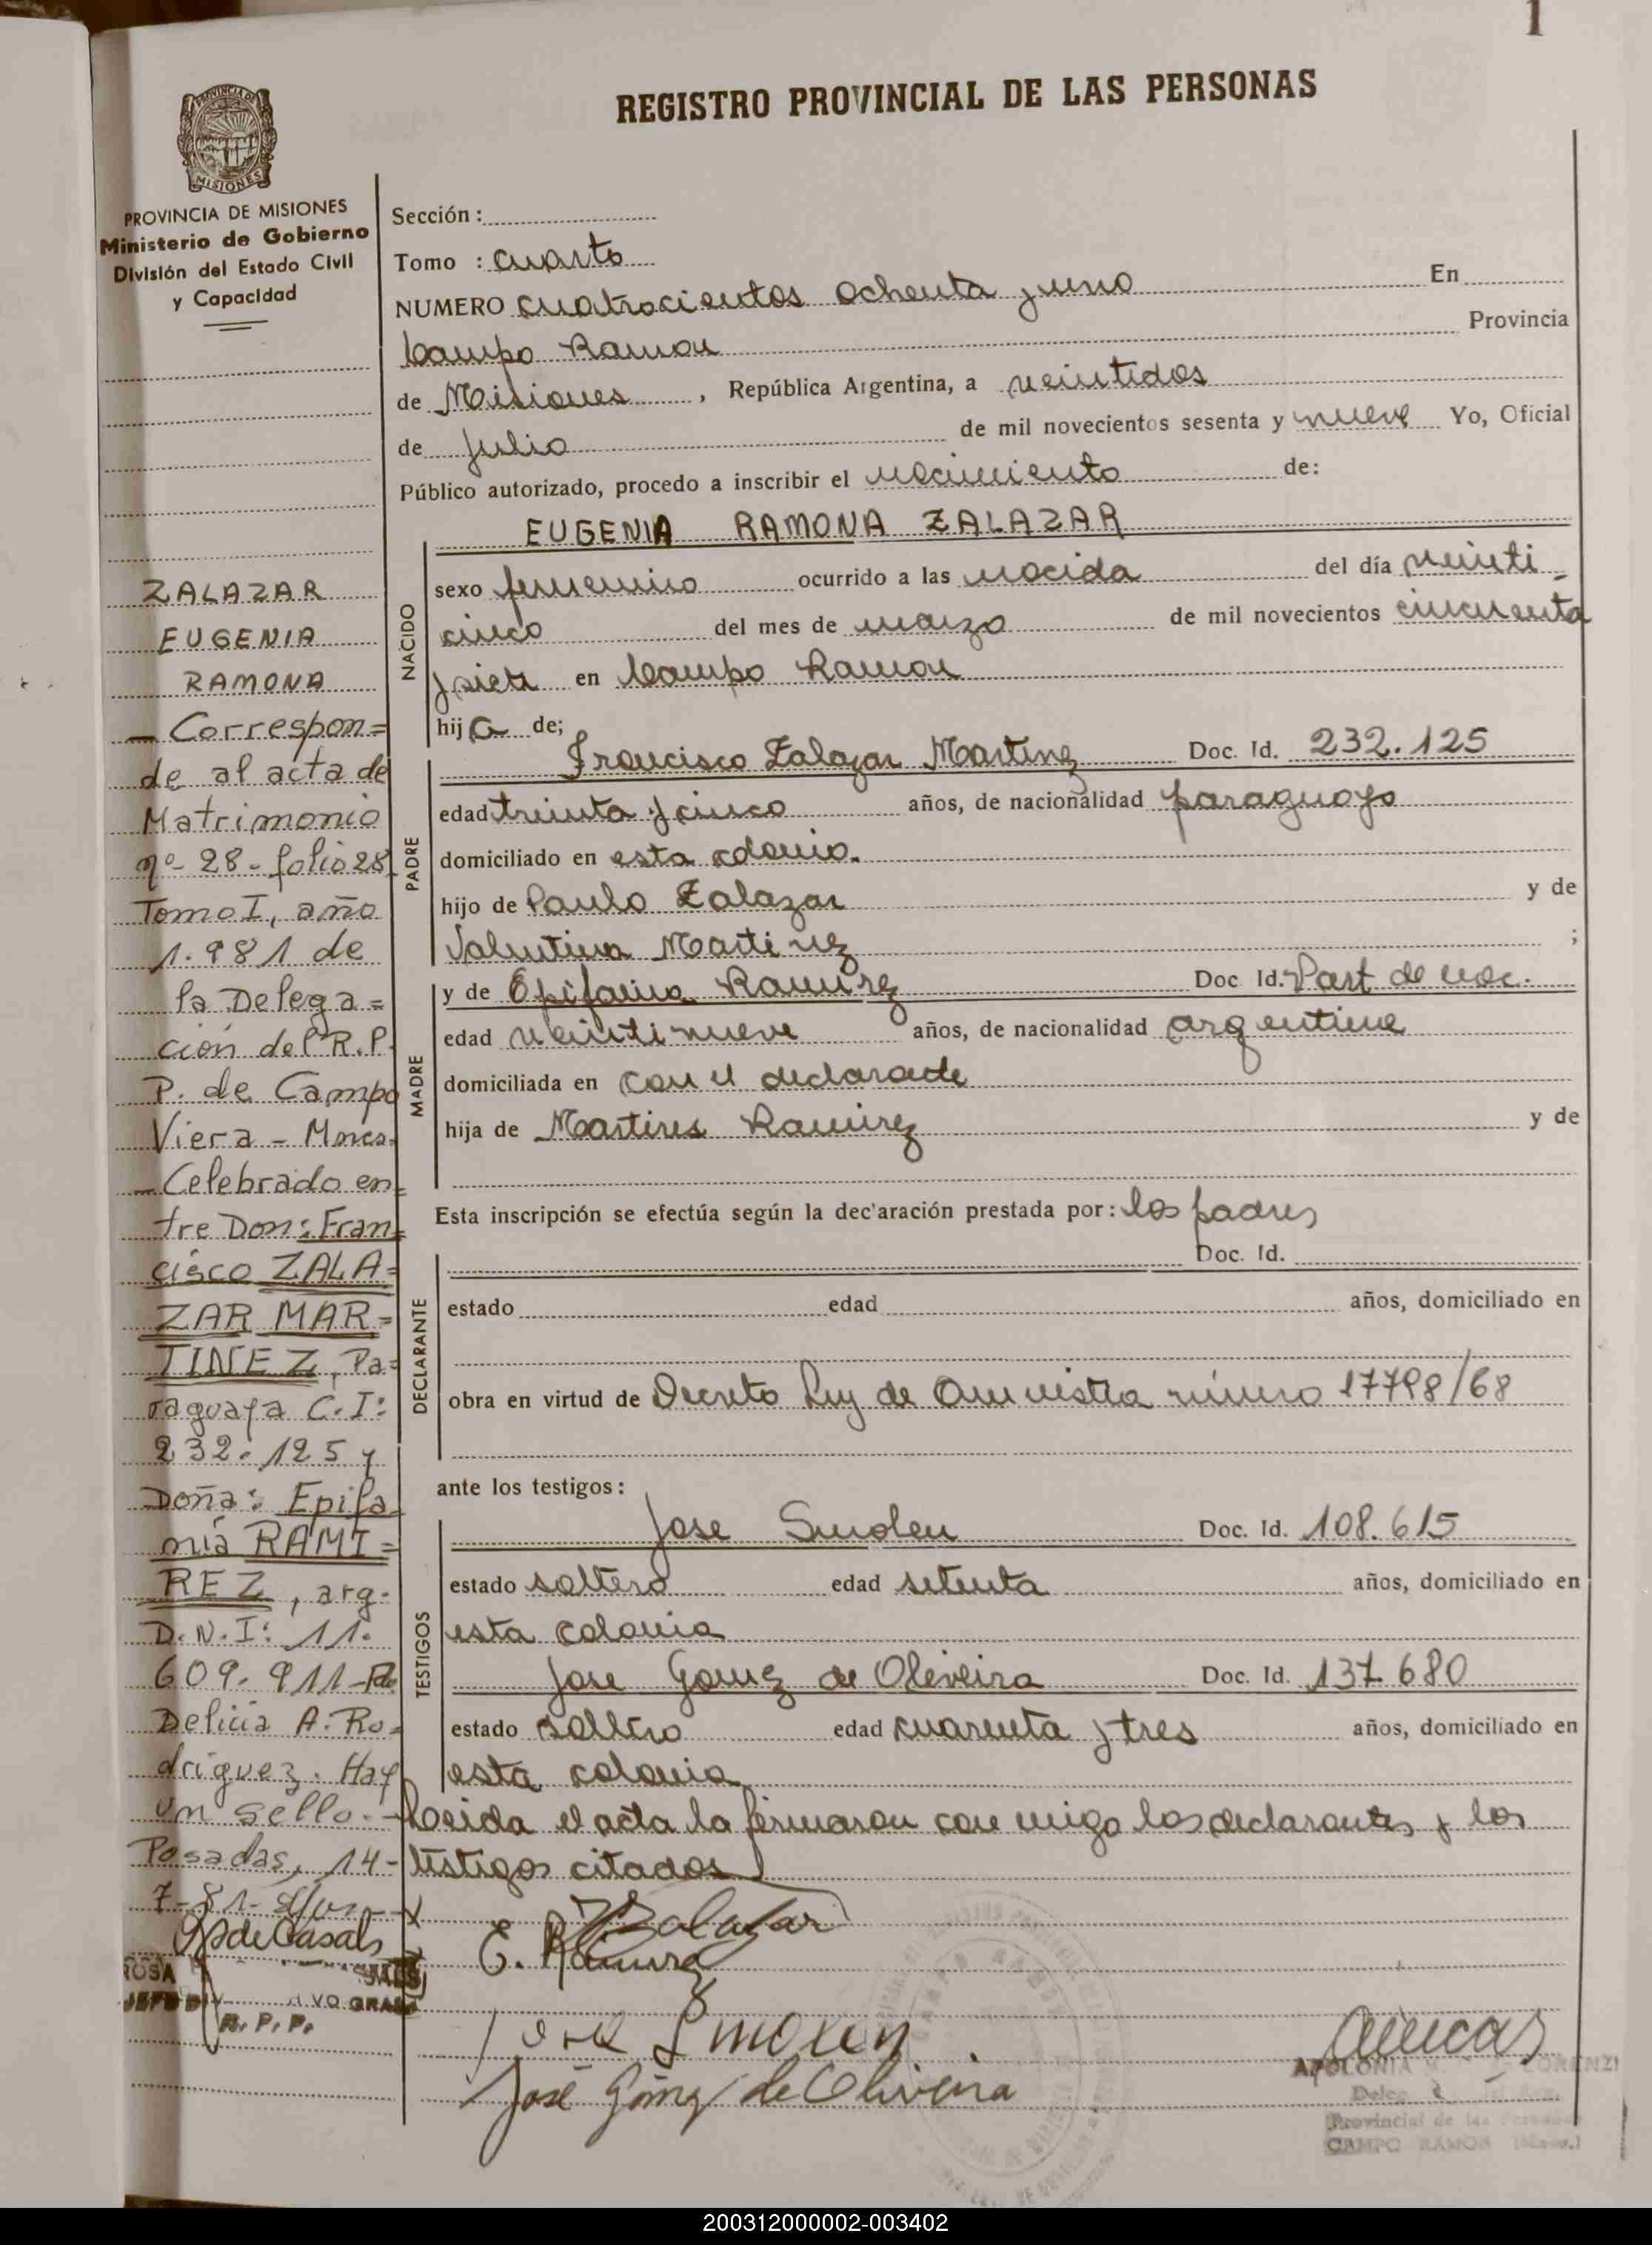 1
REGISTRO PROVINCIAL DE LAS PERSONAS
PROVINCIA DE MISIONES
PROVINCIA DE MISIONES
Ministerio de Gobierno
División del Estado Civil
y Capacidad
ZALAZAR
EUGENIA
RAMONA
— Correspon=
de al acta de
Matrimonio
nº- 28 - folio 28
Tomo I, año
1.981 de
la Delega=
ción del R.P.
P. de Campo
Viera - Mnes.
— Celebrado en=
tre Don: Fran=
cisco ZALA=
ZAR MAR=
TINEZ, Pa=
raguaya C.I:
232.125 y
Doña: Epifa=
nia RAMI=
REZ, arg.
D.N.I: 11.
609.911 - Fdo.
Delicia A. Ro=
driguez. Hay
un sello.-
Posadas, 14-
7-81-
R de Casals
ROSA
JEFE
R. P. P.
Sección:
Tomo : cuarto
NUMERO cuatrocientos ochenta y uno En
Campo Ramon Provincia
de Misiones , República Argentina, a veintidos
de Julio de mil novecientos sesenta y nueve Yo, Oficial
Público autorizado, procedo a inscribir el nacimiento de:
EUGENIA RAMONA ZALAZAR
NACIDO
sexo femenino ocurrido a las nacida del día veinti
cinco del mes de marzo de mil novecientos cincuenta
y siete en Campo Ramon
hija de;
PADRE
Francisco Zalazar Martinez Doc. Id. 232.125
edad treinta y cinco años, de nacionalidad paraguayo
domiciliado en esta colonia.
hijo de Paulo Zalazar y de
Valentina Martinez ;
MADRE
y de Epifania Ramirez Doc Id. Part de nac.
edad veinti nueve años, de nacionalidad argentina
domiciliada en con el declarante
hija de Martires Ramirez y de
Esta inscripción se efectúa según la dec'aración prestada por: los padres
Doc. Id.
DECLARANTE
estado edad años, domiciliado en
obra en virtud de Decreto Ley de Amnistia número 17798/68
ante los testigos:
TESTIGOS
Jose Smolen Doc. Id. 108.615
estado soltero edad setenta años, domiciliado en
esta colonia
Jose Gomez de Oliveira Doc. Id. 137.680
estado soltero edad cuarenta y tres años, domiciliado en
esta colonia
Leida el acta la firmaron con migo los declarantes y los
testigos citados
Zalazar
E. Ramirez
José Smolen
José Gómez de Oliveira
APOLONIA
Provincial de las Personas
CAMPO RAMON (Mnes.)
200312000002-003402